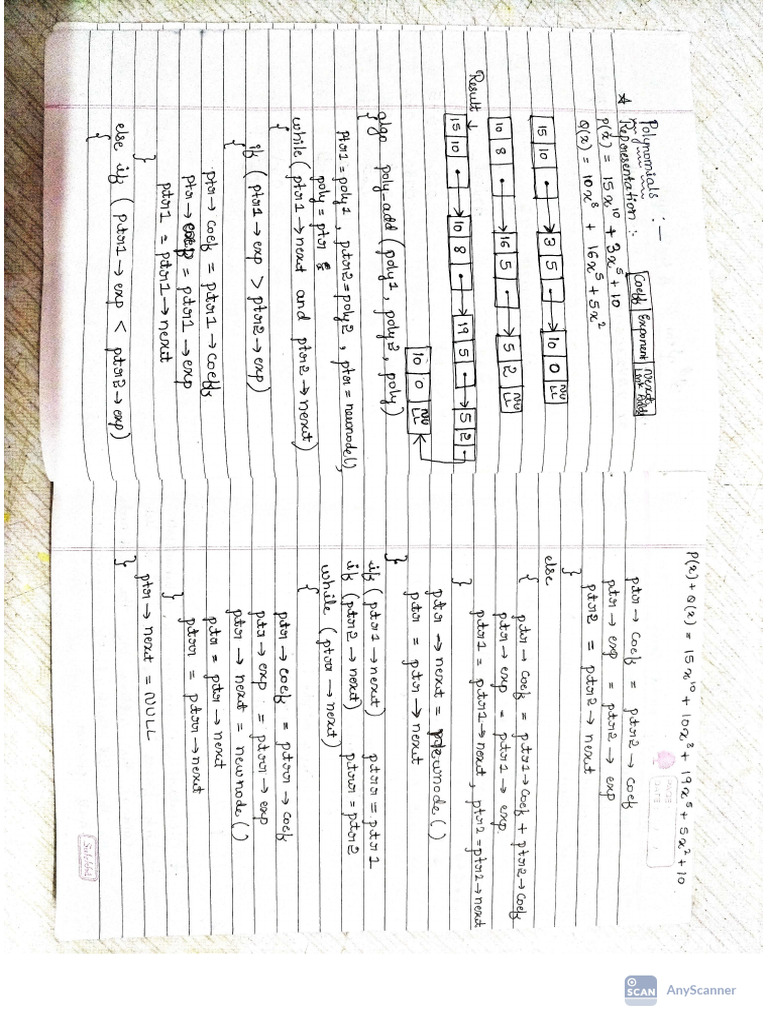 Polynomials :-
* Representation :-
Coeff Exponent Next Link Addr
P(x) = 15x¹⁰ + 3x⁵ + 10
Q(x) = 10x⁸ + 16x⁵ + 5x²
15 10 • → 3 5 • → 10 0 NULL
10 8 • → 16 5 • → 5 2 NULL
Result ↓
15 10 • → 10 8 • → 19 5 • → 5 2 •
10 0 NULL
algo poly_add (poly1, poly2, poly)
{
ptr1 = poly1, ptr2 = poly2, ptr = newnode(),
poly = ptr
while (ptr1 → next and ptr2 → next)
{
if (ptr1 → exp > ptr2 → exp)
{
ptr → coef = ptr1 → coeff
ptr → exp = ptr1 → exp
ptr1 = ptr1 → next
}
else if (ptr1 → exp < ptr2 → exp)
{
P(x) + Q(x) = 15x¹⁰ + 10x⁸ + 19x⁵ + 5x² + 10
PAGE
DATE
ptr → coef = ptr2 → coef
ptr → exp = ptr2 → exp
ptr2 = ptr2 → next
}
else
{
ptr → coef = ptr1 → coef + ptr2 → coef
ptr → exp = ptr1 → exp.
ptr1 = ptr1 → next, ptr2 = ptr2 → next
}
ptr → next = newnode()
ptr = ptr → next
}
if (ptr1 → next) ptrr = ptr1
if (ptr2 → next) ptrr = ptr2
while (ptrr → next)
{
ptr → coef = ptrr → coef
ptr → exp = ptrr → exp
ptr → next = newnode()
ptr = ptr → next
ptrr = ptrr → next
}
ptr → next = NULL
}
SCAN AnyScanner